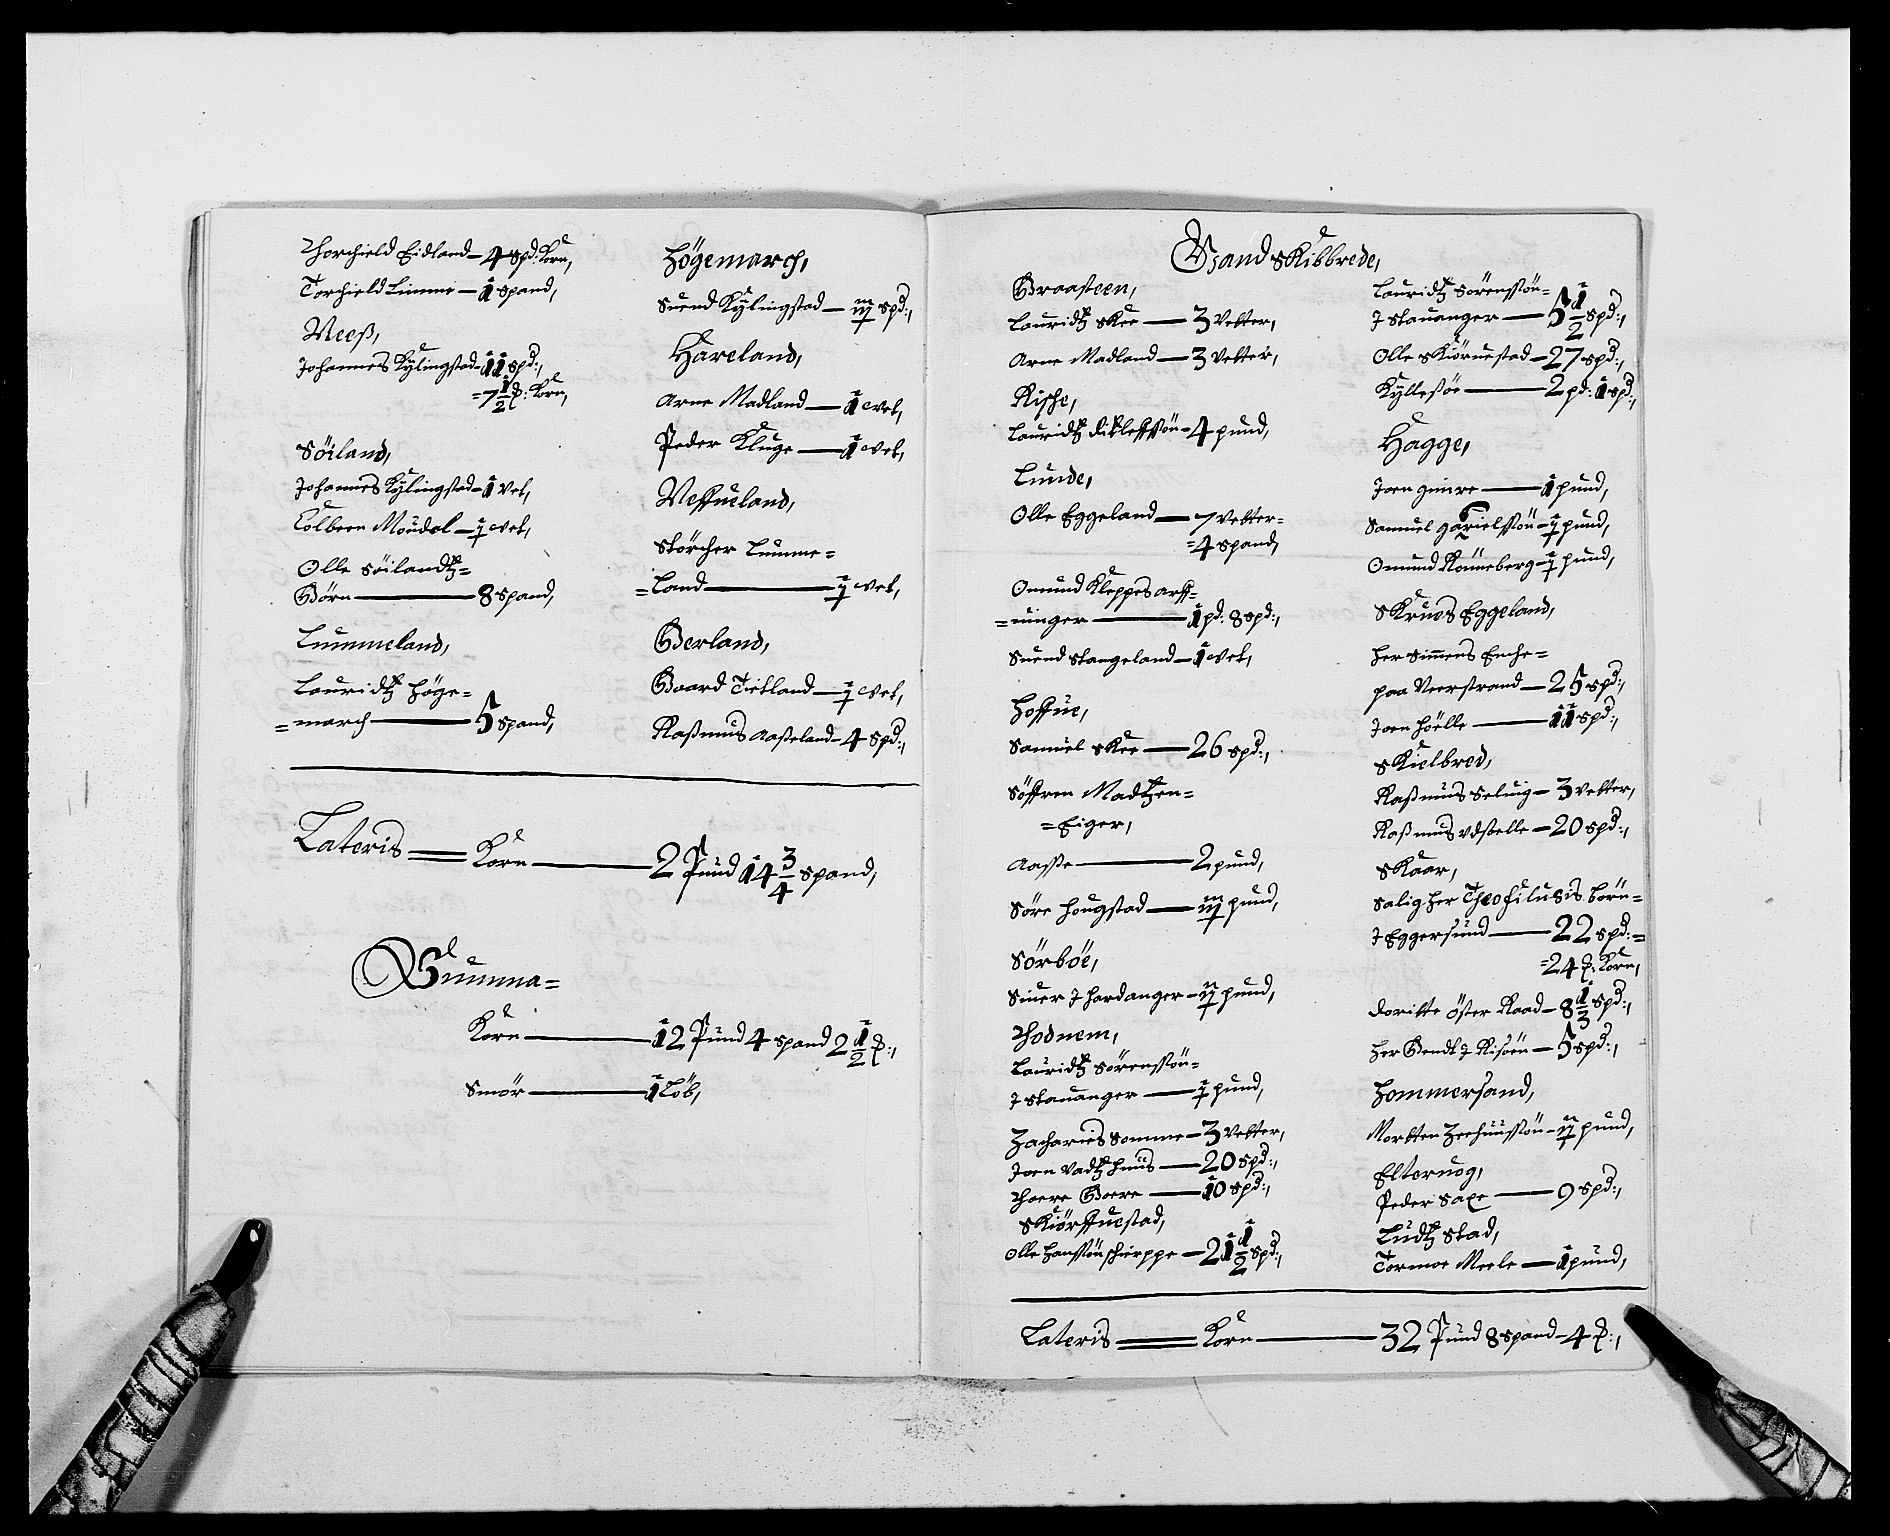 Thorchield Eidland — 4 spd: Korn,
Torchield Limmi — 1 spand,
Meeß,
Johannes Kylingstad — 11 spd:,
= 7 1/2 ʒ: Korn,
Söiland,
Johannes Kylingstad — 1 vet,
Colbeen Möndol — ½ vet,
Olle Söilandtz =
Börn — 8 spand,
Lummeland,
Lauridtz Höge =
= march — 5 spand,
Högemarch,
Suend Kylingstad — iij spd:,
Hareland,
Arne Madland — 1 vet,
Peder Kluge — 1 vet,
Veffueland,
Störcher Lumme =
= Land — ½ vet,
Berland,
Baard Tietland — ½ vet,
Raßmus Aaßeland — 4 spd:,
Lateris = Korn — 2 Pund 14 3/4 spand,
Summa =
Korn — 12 Pund 4 spand 2 1/2 ʒ:,
Smör — 1 Löb,
Sand Skibbrede,
Braasteen,
Lauridtz Skee — 3 Vetter,
Arne Madland — 3 Vetter,
Rische,
Lauridtz Ditleffssön — 4 pund,
Lunde,
Olle Eggeland — 7 Vetter =
= 4 spand,
Omund Kleppes arff =
= uinger — 1 pd: 8 spd:,
Suend Stangeland — 1 vet,
Hoffue,
Samuel Skee — 26 spd:,
Söffren Madtzen =
= Eiger,
Aasse — 2 pund,
Söre Hougstad — iij pund,
Sörböe,
Siuer J Hardanger — ij pund,
Thodnem,
Lauridtz Sörenssön =
J Stauanger — ½ pund,
Zacharies Somme — 3 Vetter,
Joen Vadtzhuus — 20 spd:,
Thore Boere — 10 spd:,
Skiörffuestad,
Olle Hanssön Schierppe — 21 1/2 spd:,
Lauridtz Sörenssön =
J Stauanger — 5 1/2 spd:,
Olle Skiöruestad — 27 spd:,
Kyllesöe — 2 pd: 1 spd:,
Hagge,
Joen Gimre — 1 pund,
Samuel Gabrielssön — ½ pund,
Omund Rönneberg — ½ pund,
Skrues Eggeland,
Her Simmens Enche =
paa Veerstrand — 25 spd:,
Joen Höelle — 11 spd:,
Skielbred,
Raßmus Seluig — 3 Vetter,
Raßmus Vdstelle — 20 spd:,
Skaar,
Salig Her Theofilusis Börn =
J Eggersund — 22 spd: =
= 24 ʒ: Korn,
Doritte Öster Raad — 8 1/3 spd:,
Her Bendt J Risöen — 5 spd:,
Hommersand,
Mortten Zeehuussön — ij pund,
Elteruog,
Peder Saxe — 9 spd:,
Ludtz Stad,
Tormoe Meele — 1 pund,
Lateris = Korn — 32 Pund 8 spand 4 ʒ:,